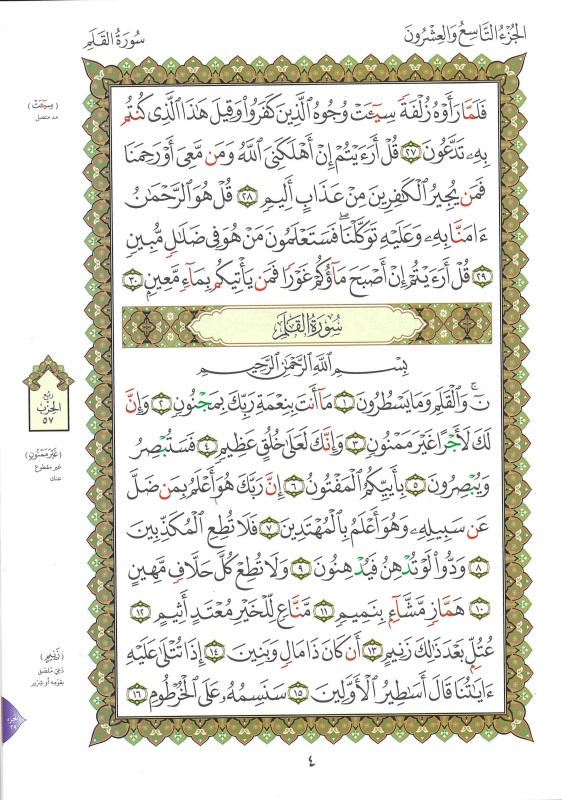 الجُزْءُ التَّاسِعُ وَالعِشْرُونَ
سُورَةُ القَلَمِ
فَلَمَّا رَأَوْهُ زُلْفَةً سِيٓـَٔتْ وُجُوهُ ٱلَّذِينَ كَفَرُوا۟ وَقِيلَ هَٰذَا ٱلَّذِى كُنتُم
بِهِۦ تَدَّعُونَ ٢٧ قُلْ أَرَءَيْتُمْ إِنْ أَهْلَكَنِىَ ٱللَّهُ وَمَن مَّعِىَ أَوْ رَحِمَنَا
فَمَن يُجِيرُ ٱلْكَٰفِرِينَ مِنْ عَذَابٍ أَلِيمٍ ٢٨ قُلْ هُوَ ٱلرَّحْمَٰنُ
ءَامَنَّا بِهِۦ وَعَلَيْهِ تَوَكَّلْنَا ۖ فَسَتَعْلَمُونَ مَنْ هُوَ فِى ضَلَٰلٍ مُّبِينٍ
٢٩ قُلْ أَرَءَيْتُمْ إِنْ أَصْبَحَ مَآؤُكُمْ غَوْرًا فَمَن يَأْتِيكُم بِمَآءٍ مَّعِينٍ ٣٠
سُورَةُ القَلَمِ
بِسْمِ ٱللَّهِ ٱلرَّحْمَٰنِ ٱلرَّحِيمِ
نٓ ۚ وَٱلْقَلَمِ وَمَا يَسْطُرُونَ ١ مَآ أَنتَ بِنِعْمَةِ رَبِّكَ بِمَجْنُونٍ ٢ وَإِنَّ
لَكَ لَأَجْرًا غَيْرَ مَمْنُونٍ ٣ وَإِنَّكَ لَعَلَىٰ خُلُقٍ عَظِيمٍ ٤ فَسَتُبْصِرُ
وَيُبْصِرُونَ ٥ بِأَييِّكُمُ ٱلْمَفْتُونُ ٦ إِنَّ رَبَّكَ هُوَ أَعْلَمُ بِمَن ضَلَّ
عَن سَبِيلِهِۦ وَهُوَ أَعْلَمُ بِٱلْمُهْتَدِينَ ٧ فَلَا تُطِعِ ٱلْمُكَذِّبِينَ
٨ وَدُّوا۟ لَوْ تُدْهِنُ فَيُدْهِنُونَ ٩ وَلَا تُطِعْ كُلَّ حَلَّافٍ مَّهِينٍ
١٠ هَمَّازٍ مَّشَّآءٍۭ بِنَمِيمٍ ١١ مَّنَّاعٍ لِّلْخَيْرِ مُعْتَدٍ أَثِيمٍ ١٢
عُتُلٍّۭ بَعْدَ ذَٰلِكَ زَنِيمٍ ١٣ أَن كَانَ ذَا مَالٍ وَبَنِينَ ١٤ إِذَا تُتْلَىٰ عَلَيْهِ
ءَايَٰتُنَا قَالَ أَسَٰطِيرُ ٱلْأَوَّلِينَ ١٥ سَنَسِمُهُۥ عَلَى ٱلْخُرْطُومِ ١٦
(سِيٓـَٔتْ)
مد متصل
ربع
الحزب
٥٧
(غَيْرَ مَمْنُونٍ)
غير مقطوع
عنك
(زَنِيمٍ)
دَعِيّ مُلصَق
بقومه أو شرير
الجزء
٢٩
٤